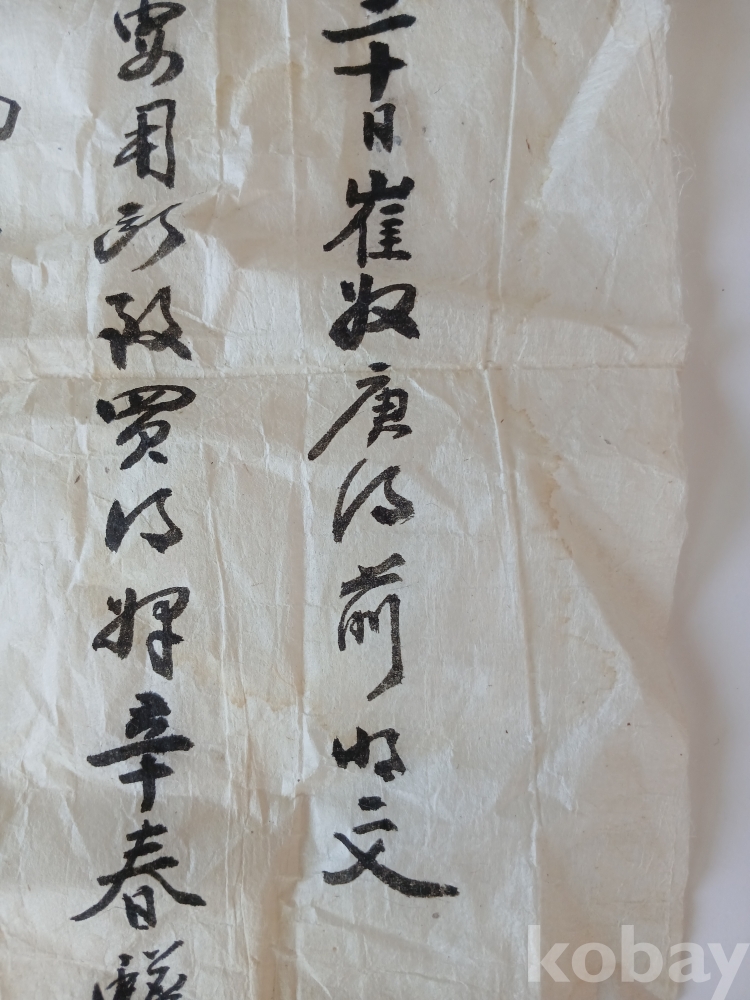 二十日崔奴庚得前明文
要用所致買得婢辛春
kobay